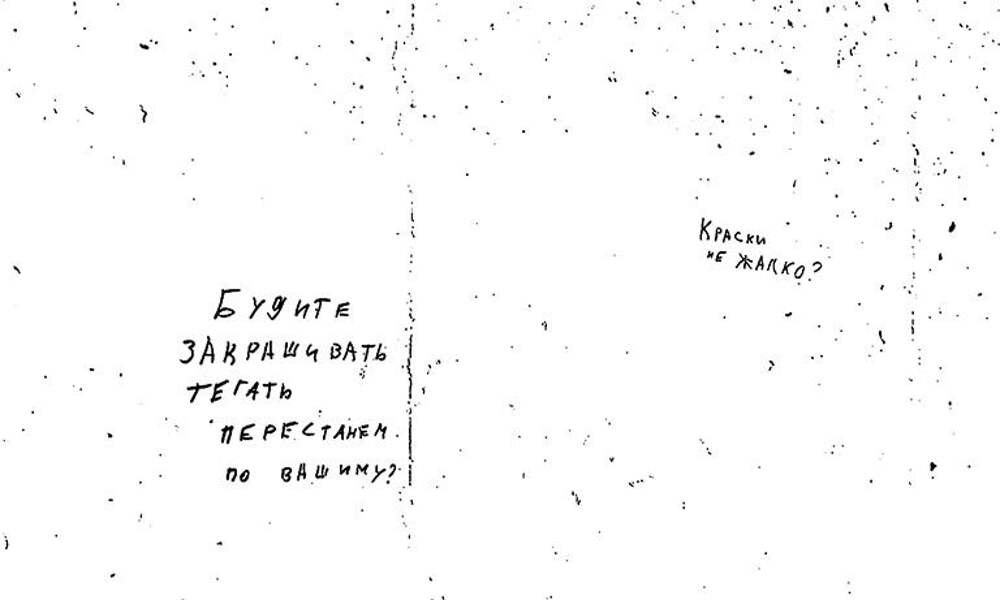 Будите
закрашивать
тегать
перестанем
по вашиму?
Краски
не жалко?